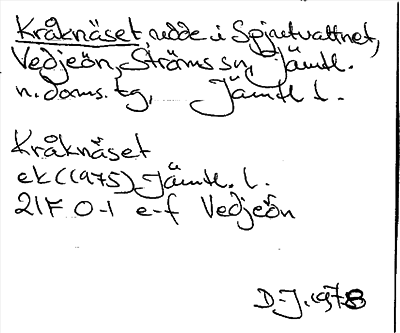 Kråknäset, udde i Spjutvattnet,
Vedjeön, Ströms sn, Jämtl.
n. doms. tg, Jämtl l.
Kråknäset
ek (1975) Jämtl. l.
21F 0-1 e-f Vedjeön
D-J. 1978